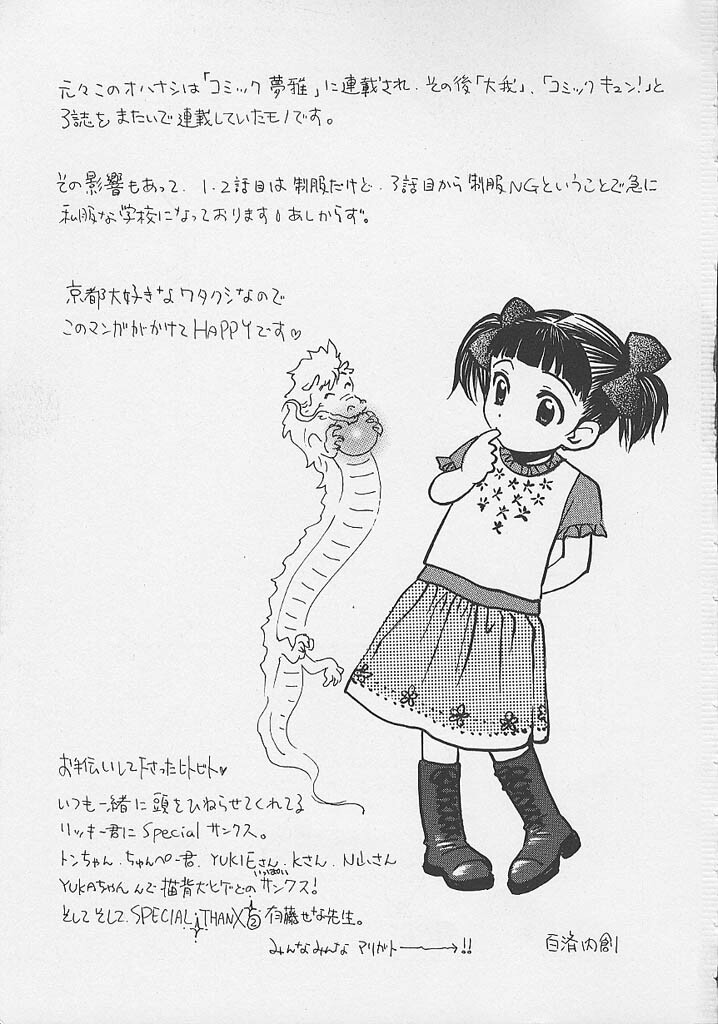 元々このオハナシは「コミック夢雅」に連載され、その後「大我」、「コミックキュン!」と
3誌をまたいで連載していたモノです。
その影響もあって、1.2話目は制服だけど、3話目から制服NGということで急に
私服な学校になっております。あしからず。
京都大好きなワタクシなので
このマンガがかけてHAPPYです♡
お手伝いして下さったヒトビト♡
いつも一緒に頭をひねらせてくれてる
リッキー君にSpecialサンクス。
トンちゃん、ちゃんぺー君、YUKIEさん、Kさん、N山さん
YUKAちゃん んで描背犬ヒゲどのいっぱいサンクス!
そしてそして、SPECIAL THANX② 有藤せな先生。
みんなみんな アリガト→!!
百済内創